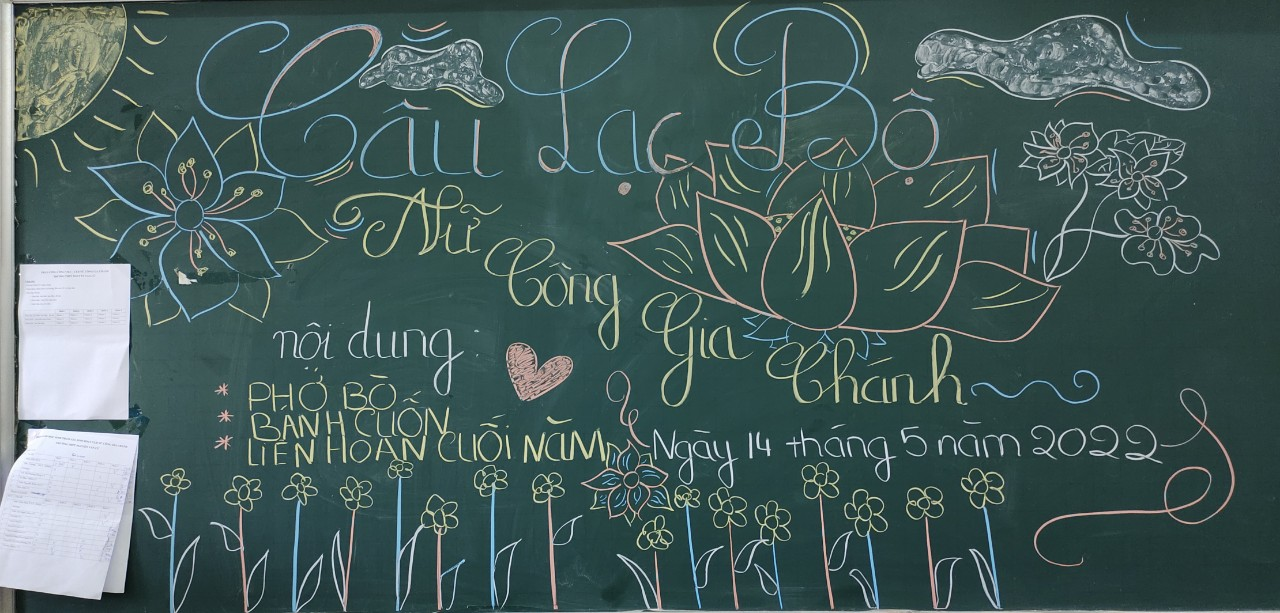 Câu Lạc Bộ
Nữ Công Gia Chánh
nội dung
* PHỞ BÒ
* BÁNH CUỐN
* LIÊN HOAN CUỐI NĂM
Ngày 14 tháng 5 năm 2022